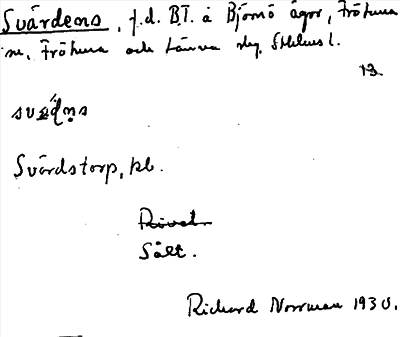 Svärdens, f.d. BT. å Björnö ägor, Frötuna
sn, Frötuna och Länna slg. Sthlms l.
svädns
Svärdstorp, kb.
Sålt.
Richard Norrman 1930.